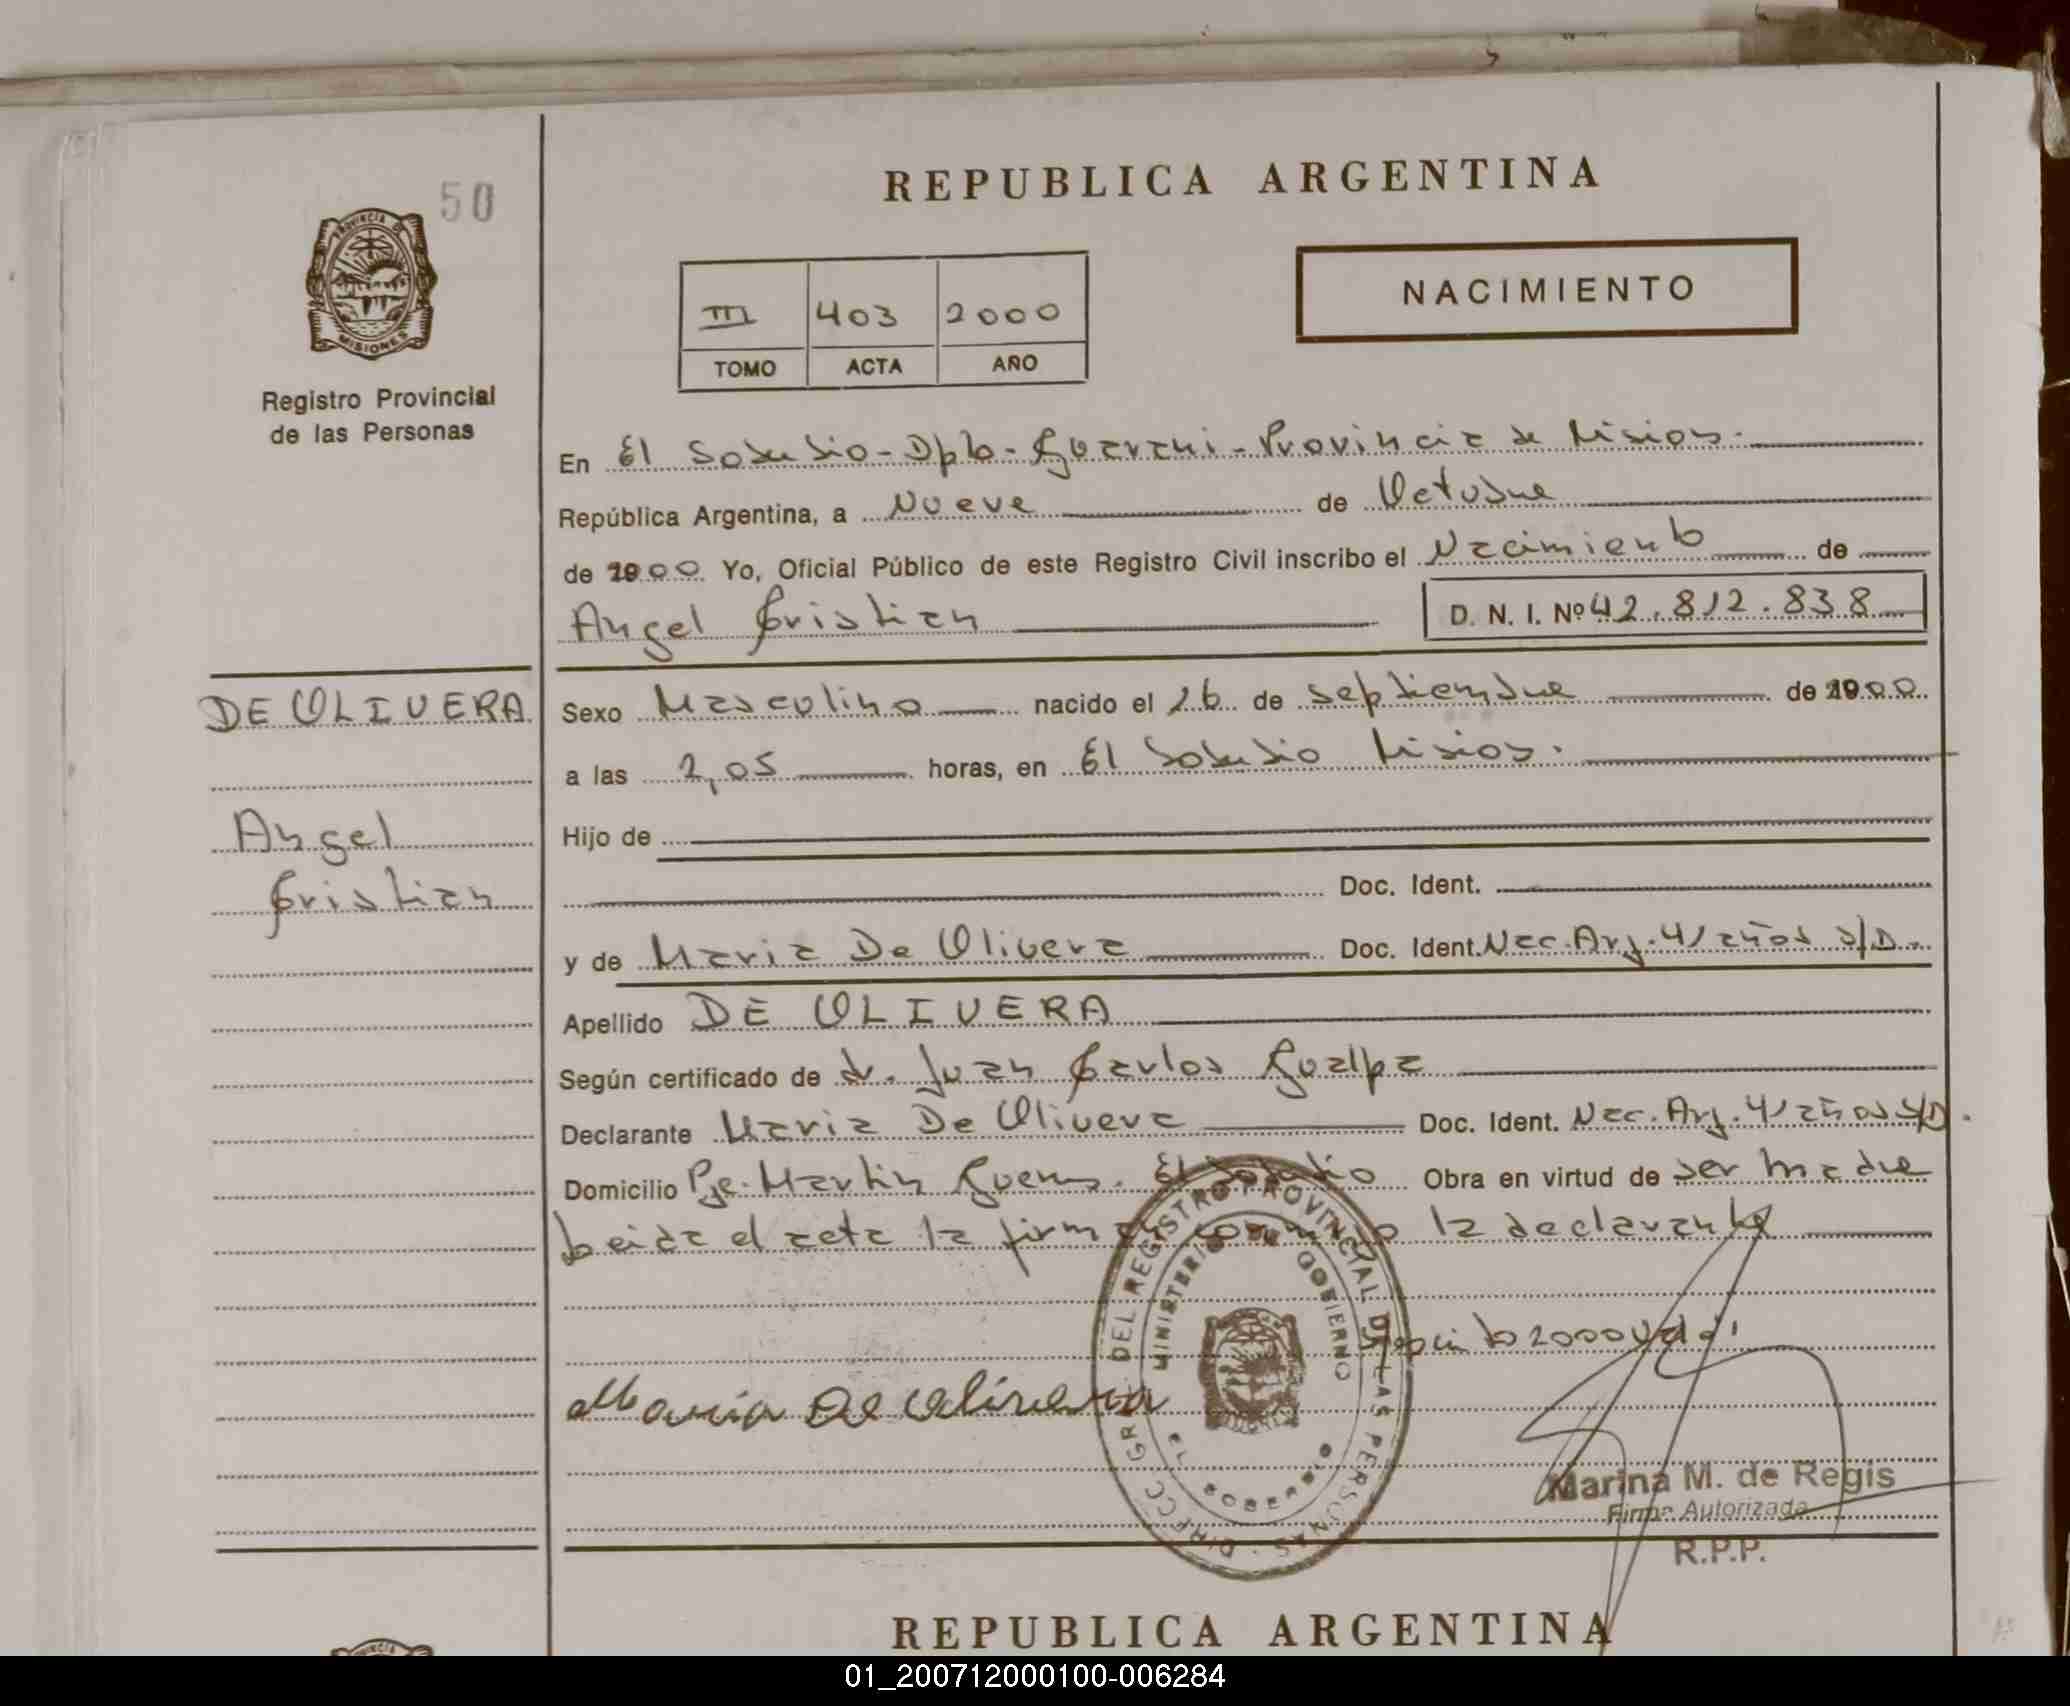 50
PROVINCIA DE
MISIONES
Registro Provincial
de las Personas
DE OLIVERA
Angel
Cristian
REPUBLICA ARGENTINA
III 403 2000
TOMO ACTA AÑO
NACIMIENTO
En El Soberbio - Dpto - Guarani - Provincia de Misiones.
República Argentina, a Nueve de Octubre
de 2000 Yo, Oficial Público de este Registro Civil inscribo el Nacimiento de
Angel Cristian D. N. I. Nº 42.812.838
Sexo Masculino nacido el 26 de septiembre de 2000
a las 2,05 horas, en El Soberbio Misiones.
Hijo de
Doc. Ident.
y de Maria De Olivera Doc. Ident. Nac. Arg. 41 años S/D.
Apellido DE OLIVERA
Según certificado de dr. Juan Carlos Gualpa
Declarante Maria De Olivera Doc. Ident. Nac. Arg. 41 años S/D.
Domicilio Pje. Martin Guemes. El Soberbio Obra en virtud de ser madre
Leida el acta la firma conmigo la declarante
2000 vale
Maria De Olivera
DIRECC GRAL DEL REGISTRO PROVINCIAL DE LAS PERSONAS
MINISTERIO DE GOBIERNO
EL SOBERBIO
Marina M. de Regis
Firma Autorizada
R.P.P.
REPUBLICA ARGENTINA
01_200712000100-006284